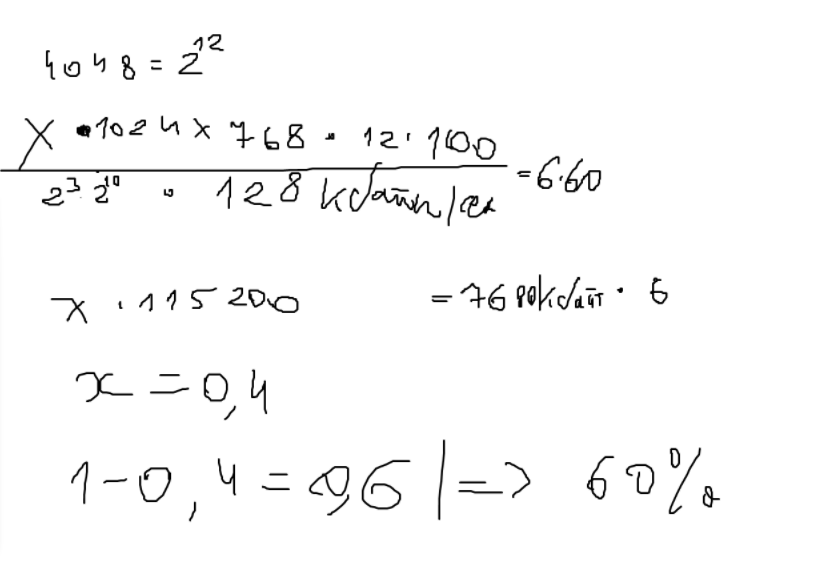 4048 = 2^12
x · 1024 x 768 · 12 · 100
2^3 2^10 · 128 кбайт/сек = 6·60
x · 115200 = 7680кбайт · 6
x = 0,4
1-0,4 = 0,6 | => 60%